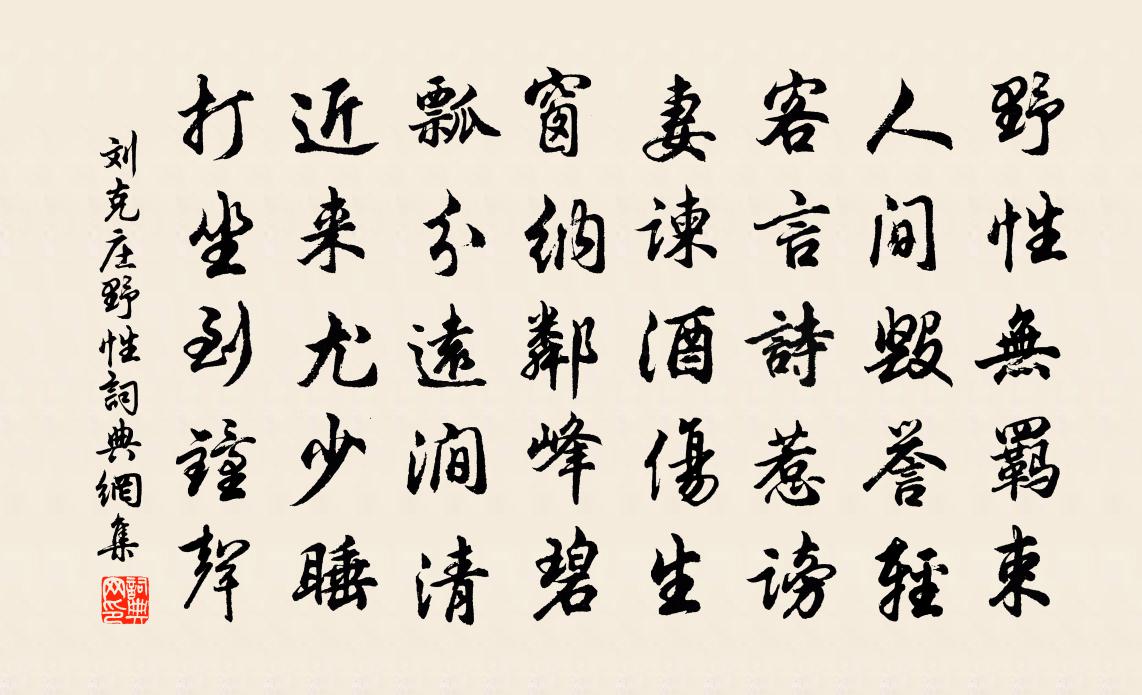 野性無羈束
人间毀誉輕
客言詩惹謗
妻諫酒傷生
窗納鄰峰碧
瓢分遠澗清
近来尤少睡
打坐到鐘聲
刘克庄野性詞典網集
詞典网印